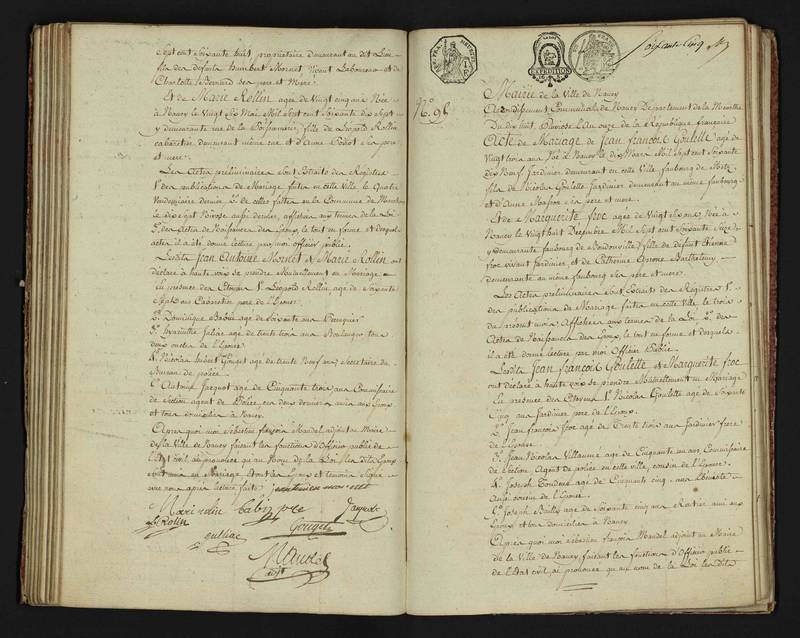 sept cent soixante huit proprietaire demeurant au dit Lieu
fils des defunts humbert Mornet vivant Laboureur et de
Charlotte Bernard ses pere et Mere
Et de Marie Rollin agée de Vingt cinq ans Née
a Nancy le Vingt six Mai Mil Sept cent Soixante dix Sept
y demeurante rue de la Poissonnerie, fille de Léopold Rollin
cabaretier demeurant même rue et d'Anne ses pere
et mere.
Les Actes preliminaires sont Extraits des Registres
1º des publications de Mariage faites en cette Ville le quatre
Vendemiaire dernier 2º de celles faites en la Commune de
le dix Sept Nivose aussi dernier, affichées aux termes de la Loi
3º des Actes de Naissances des Epoux, le tout en forme et desquels
actes il a été donné lecture par moi officier public.
Lesdits Jean Antoine Mornet et Marie Rollin ont
declaré à haute voix se prendre Mutuellement en Mariage
en presence des Citoyens 1º Léopold Rollin agé de Soixante
sept ans Cabaretier pere de l'Epouse
2º Dominique Babin agé de Soixante ans Perruquier
3º hyacinthe agé de trente trois ans Boulanger tous
deux oncles de l'Epouse
4º Nicolas hubert Gouget agé de trente Neuf ans, Secretaire du
Bureau de police
5º Antoine Jacquot agé de Cinquante trois ans Commissaire
de Section agent de Police, ces deux derniers amis aux Epoux
et tous domiciliés à Nancy.
Après quoi moi Sébastien françois Mandel adjoint au Maire
de la Ville de Nancy faisant les fonctions d'officier public de
l'Etat Civil ai prononcé qu'au Nom de la Loi les dits Epoux
sont unis en Mariage et ont les Epoux et temoins Signé
avec moi après lecture faite
Marie rolin babin pre Jacquot
L Rolin Gouget
Mandel
adjt
Soixante Cinq
EXPEDITION
Nº 96
Mairie de la Ville de Nancy
Arrondissement Communal de Nancy Département de la Meurthe
Du dix huit Pluviose l'An onze de la République française
Acte de Mariage de Jean françois Goulette agé de
Vingt trois ans Né à Nancy le dix Mars Mil Sept cent Soixante
dix Neuf, Jardinier demeurant en cette Ville faubourg de Metz
fils de Nicolas Goulette Jardinier demeurant au même faubourg
et d'Anne Masson ses pere et mere.
Et de Marguerite froc agée de Vingt Six ans Née à
Nancy le Vingt huit Decembre Mil Sept cent Soixante Seize
y demeurante faubourg de Boudonville, fille de defunt Etienne
froc vivant Jardinier, et de Catherine Barthelemy
demeurante au même faubourg ses pere et mere.
Les Actes preliminaires sont Extraits des Registres 1º
des publications de Mariage faites en cette Ville le trois
du present mois Affichées aux termes de la Loi, 2º des
Actes de Naissances des Epoux, le tout en forme et desquels
il a été donné lecture par moi Officier Public.
Lesdits Jean françois Goulette et Marguerite froc
ont declaré à haute voix se prendre Mutuellement en Mariage
En presence des Citoyens 1º Nicolas Goulette agé de Soixante
Cinq ans Jardinier pere de l'Epoux.
2º Jean françois froc agé de Trente trois ans Jardinier frere
de l'Epouse
3º Jean Nicolas Villaume agé de Cinquante un ans Commissaire
de Section Agent de police en cette ville, cousin de l'Epouse.
4º Joseph agé de Cinquante cinq ans
Aussi cousin de l'Epouse
5º Joseph Bailly agé de Soixante cinq ans Rentier ami aux
Epoux et tous domiciliés à Nancy
Après quoi moi Sébastien françois Mandel adjoint au Maire
de la Ville de Nancy, faisant les fonctions d'Officier public
de l'Etat civil, ai prononcé qu'au nom de la Loi les dits